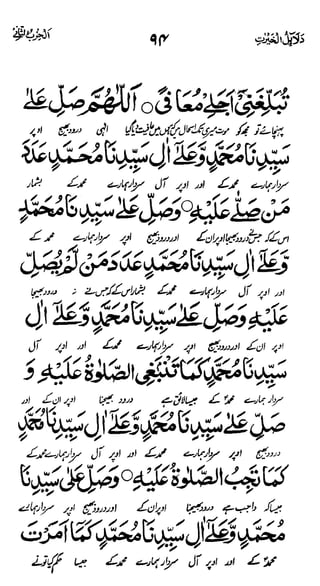 دَلَآئِلُ الْخَيْرٰتِ ۹۴ اَلْحِزْبُ الثَّانِیْ
تُبَلِّغُنِیْ اَجَلِیْ مُعَافًی ○ اَللّٰهُمَّ صَلِّ عَلٰی
پہنچائے تو مجھکو موت میری تک الٰہی درود بھیج اوپر
سَيِّدِنَا مُحَمَّدٍ وَّعَلٰٓی اٰلِ سَيِّدِنَا مُحَمَّدٍ عَدَدَ
سردار ہمارے محمد کے اور اوپر آل سردار ہمارے محمد کے بشمار
مَنْ صَلّٰی عَلَيْهِ ○ وَصَلِّ عَلٰی سَيِّدِنَا مُحَمَّدٍ
اس کے کہ جسنے درود بھیجا اوپر ان کے اور درود بھیج اوپر سردار ہمارے محمد کے
وَّعَلٰٓی اٰلِ سَيِّدِنَا مُحَمَّدٍ عَدَدَ مَنْ لَّمْ يُصَلِّ
اور اوپر آل سردار ہمارے محمد کے بشمار اس کے کہ جس نے نہ درود بھیجا
عَلَيْهِ وَصَلِّ عَلٰی سَيِّدِنَا مُحَمَّدٍ وَّعَلٰٓی اٰلِ
اوپر ان کے اور درود بھیج اوپر سردار ہمارے محمد کے اور اوپر آل
سَيِّدِنَا مُحَمَّدٍ كَمَا تَنْۢبَغِی الصَّلٰوةُ عَلَيْهِ وَ
سردار ہمارے محمد کے جیسا لائق ہے درود بھیجنا اوپر ان کے اور
صَلِّ عَلٰی سَيِّدِنَا مُحَمَّدٍ وَّعَلٰٓی اٰلِ سَيِّدِنَا مُحَمَّدٍ
درود بھیج اوپر سردار ہمارے محمد کے اور اوپر آل سردار ہمارے محمد کے
كَمَا تَجِبُ الصَّلٰوةُ عَلَيْهِ ○ وَصَلِّ عَلٰی سَيِّدِنَا
جیسا کہ واجب ہے درود بھیجنا اوپر ان کے اور درود بھیج اوپر سردار ہمارے
مُحَمَّدٍ وَّعَلٰٓی اٰلِ سَيِّدِنَا مُحَمَّدٍ كَمَا اَمَرْتَ
محمد کے اور اوپر آل سردار ہمارے محمد کے جیسا حکم کیا تونے